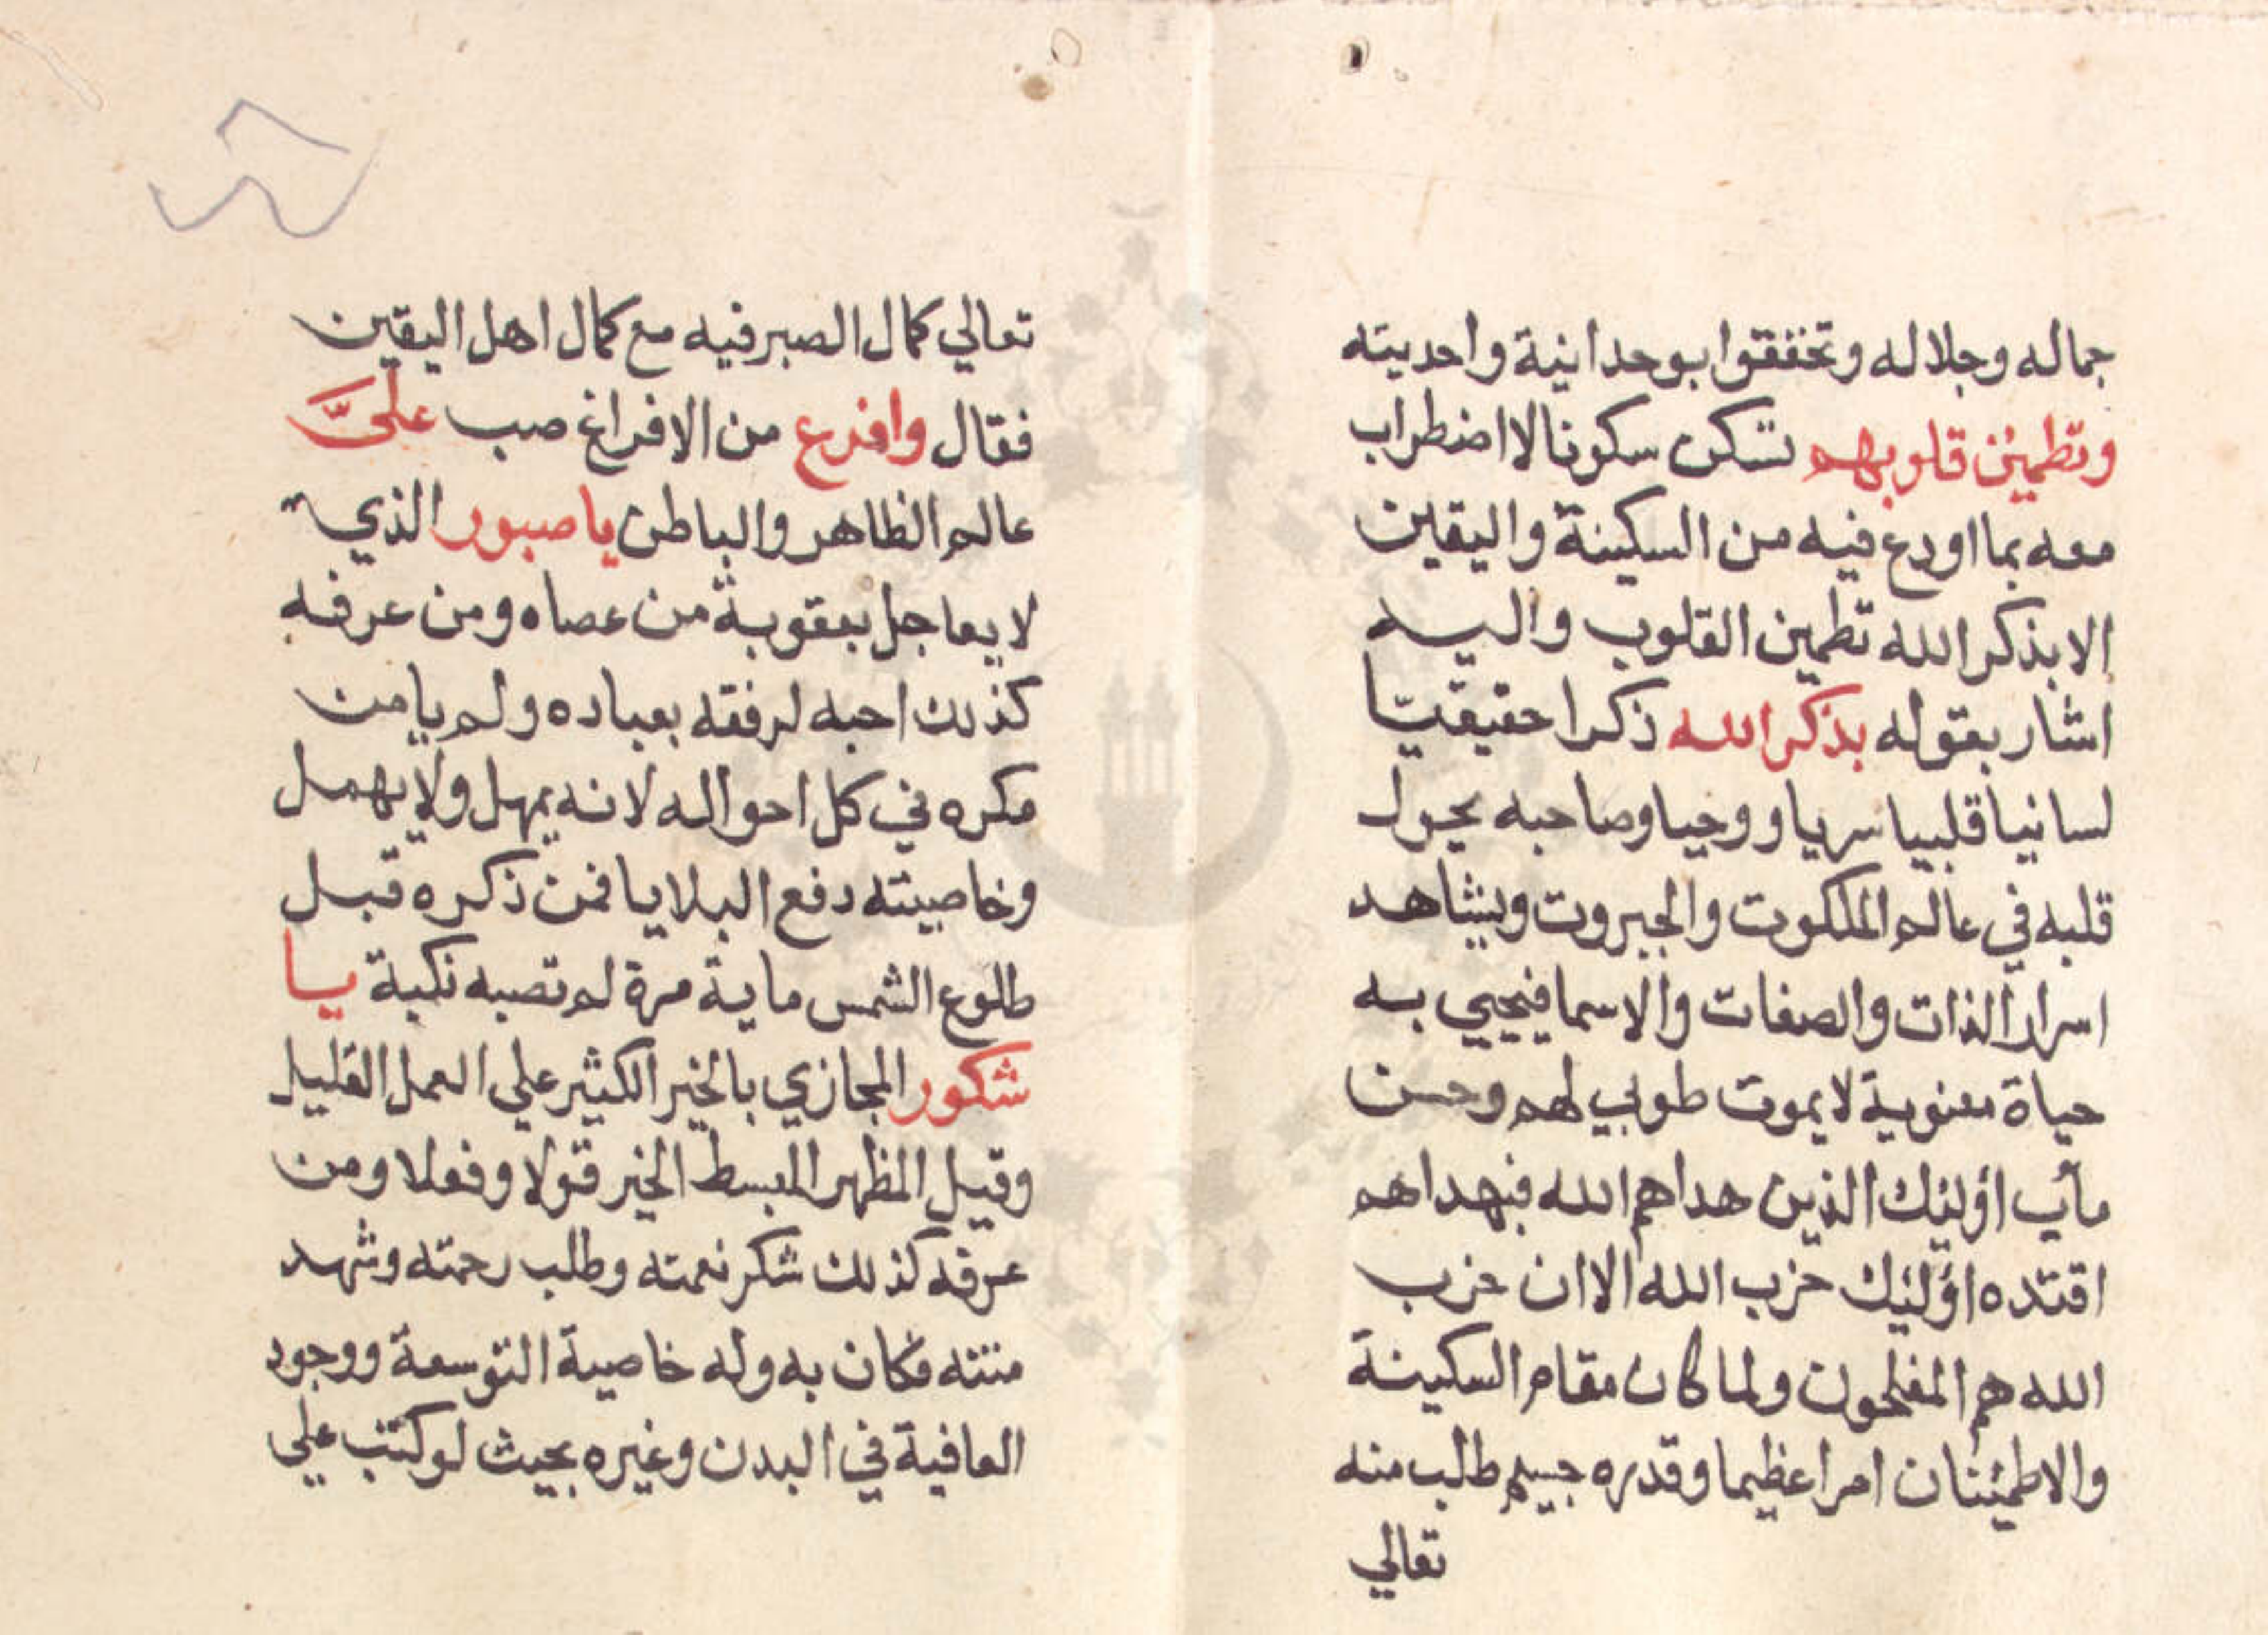 جماله وجلاله وتحققوا بوحدانية واحديته
وتطمئن قلوبهم تسكن سكونا لا اضطراب
معه بما اودع فيه من السكينة واليقين
الا بذكر الله تطمين القلوب واليه
اشار بقوله بذكر الله ذكرا حقيقيّا
لسانيا قلبيا سريا وروحيا وصاحبه يجول
قلبه في عالم الملكوت والجبروت ويشاهد
اسرار الذات والصفات والاسما فيحيي به
حياة معنوية لا يموت طوبي لهم وحسن
مأب اؤليك الذين هداهم الله فبهداهم
اقتده اؤليك حزب الله الا ان حزب
الله هم المفلحون ولما كان مقام السكينة
والاطمئنان امرا عظيما وقدره جسيم طلب منه
تعالي
تعالي كمال الصبر فيه مع كمال اهل اليقين
فقال وافرع من الافراغ صب علىَّ
عالم الظاهر والباطن يا صبور الذي
لا يعاجل بعقوبة من عصاه ومن عرفه
كذلك احبه لرفقه بعباده ولم يامن
مكره في كل احواله لانه يمهل ولا يهمل
وخاصيته دفع البلايا فمن ذكره قبل
طلوع الشمس ماية مرة لم تصبه نكبة يا
شكور المجازي بالخير الكثير علي العمل القليل
وقيل المظهر المبسط الخير قولا وفعلا ومن
عرفه كذلك شكر نعمته وطلب رحمته وشهد
منته فكان به وله خاصية التوسعة ووجود
العافية في البدن وغيره بحيث لو كتب علي